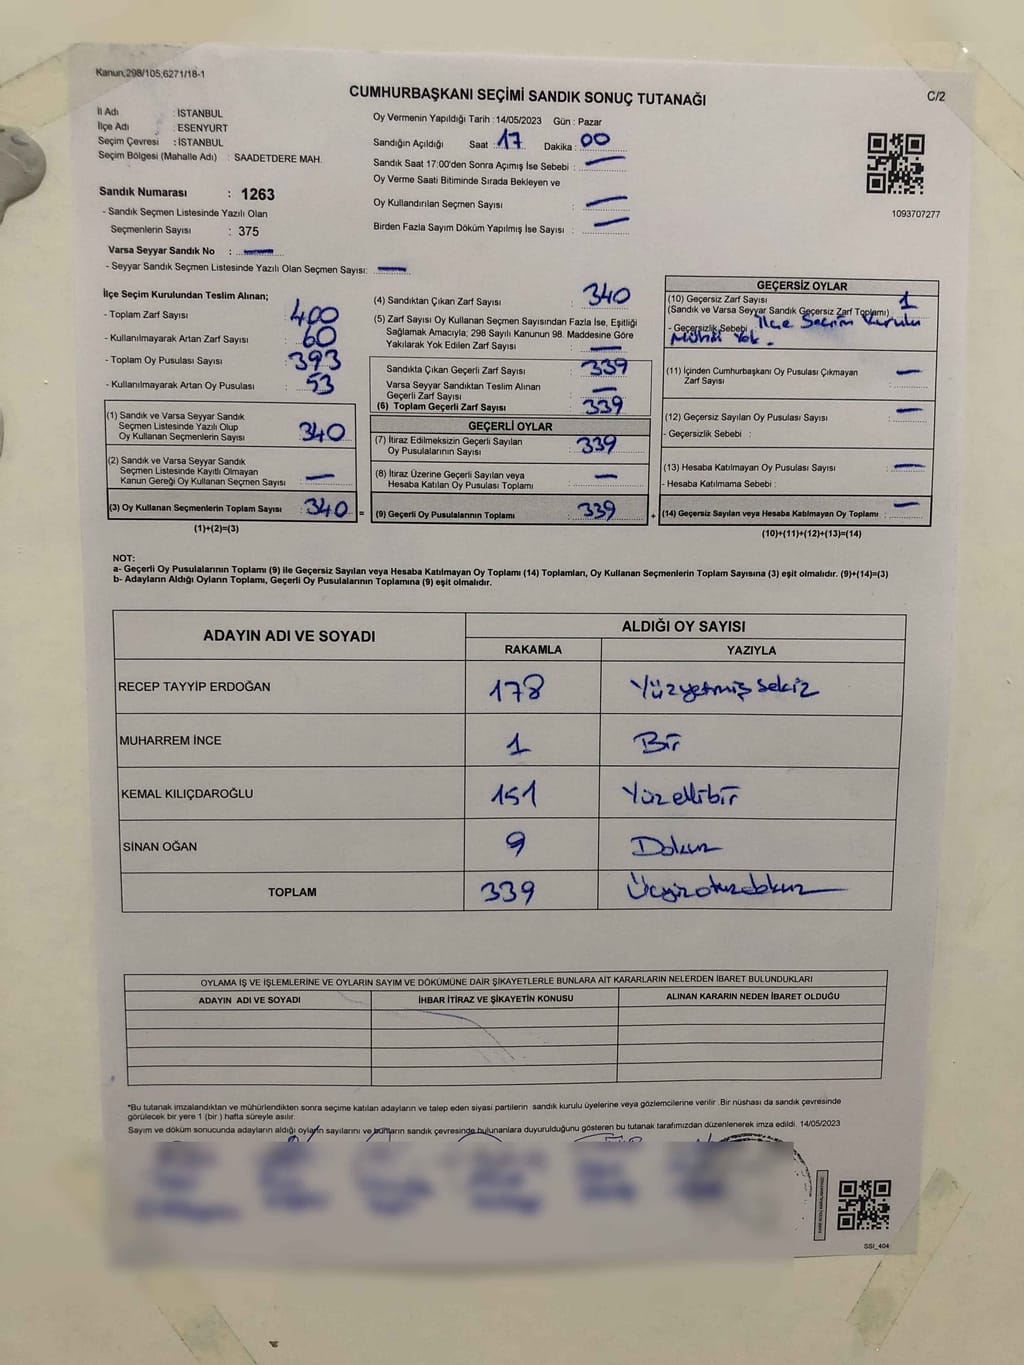 Kanun,298/105,6271/18-1
CUMHURBAŞKANI SEÇİMİ SANDIK SONUÇ TUTANAĞI
C/2
İl Adı : İSTANBUL
İlçe Adı : ESENYURT
Seçim Çevresi : İSTANBUL
Seçim Bölgesi (Mahalle Adı) : SAADETDERE MAH.
Sandık Numarası : 1263
- Sandık Seçmen Listesinde Yazılı Olan
Seçmenlerin Sayısı : 375
Varsa Seyyar Sandık No : —
- Seyyar Sandık Seçmen Listesinde Yazılı Olan Seçmen Sayısı: —
Oy Vermenin Yapıldığı Tarih : 14/05/2023 Gün : Pazar
Sandığın Açıldığı Saat : 17 Dakika : 00
Sandık Saat 17:00'den Sonra Açımış İse Sebebi : —
Oy Verme Saati Bitiminde Sırada Bekleyen ve
Oy Kullandırılan Seçmen Sayısı : —
Birden Fazla Sayım Döküm Yapılmış İse Sayısı : —
1093707277
İlçe Seçim Kurulundan Teslim Alınan;
- Toplam Zarf Sayısı : 400
- Kullanılmayarak Artan Zarf Sayısı : 60
- Toplam Oy Pusulası Sayısı : 393
- Kullanılmayarak Artan Oy Pusulası : 53
(1) Sandık ve Varsa Seyyar Sandık
Seçmen Listesinde Yazılı Olup
Oy Kullanan Seçmenlerin Sayısı : 340
(2) Sandık ve Varsa Seyyar Sandık
Seçmen Listesinde Kayıtlı Olmayan
Kanun Gereği Oy Kullanan Seçmen Sayısı : —
(3) Oy Kullanan Seçmenlerin Toplam Sayısı : 340 =
(1)+(2)=(3)
(4) Sandıktan Çıkan Zarf Sayısı : 340
(5) Zarf Sayısı Oy Kullanan Seçmen Sayısından Fazla İse, Eşitliği
Sağlamak Amacıyla; 298 Sayılı Kanunun 98. Maddesine Göre
Yakılarak Yok Edilen Zarf Sayısı : —
Sandıkta Çıkan Geçerli Zarf Sayısı : 339
Varsa Seyyar Sandıktan Teslim Alınan
Geçerli Zarf Sayısı : —
(6) Toplam Geçerli Zarf Sayısı : 339
GEÇERLİ OYLAR
(7) İtiraz Edilmeksizin Geçerli Sayılan
Oy Pusulalarının Sayısı : 339
(8) İtiraz Üzerine Geçerli Sayılan veya
Hesaba Katılan Oy Pusulası Toplamı : —
(9) Geçerli Oy Pusulalarının Toplamı : 339 +
GEÇERSİZ OYLAR
(10) Geçersiz Zarf Sayısı : 1
(Sandık ve Varsa Seyyar Sandık Geçersiz Zarf Toplamı)
- Geçersizlik Sebebi : İlçe Seçim Kurulu
Mührü Yok.
(11) İçinden Cumhurbaşkanı Oy Pusulası Çıkmayan
Zarf Sayısı : —
(12) Geçersiz Sayılan Oy Pusulası Sayısı : —
- Geçersizlik Sebebi :
(13) Hesaba Katılmayan Oy Pusulası Sayısı : —
- Hesaba Katılmama Sebebi :
(14) Geçersiz Sayılan veya Hesaba Katılmayan Oy Toplamı : —
(10)+(11)+(12)+(13)=(14)
NOT:
a- Geçerli Oy Pusulalarının Toplamı (9) ile Geçersiz Sayılan veya Hesaba Katılmayan Oy Toplamı (14) Toplamları, Oy Kullanan Seçmenlerin Toplam Sayısına (3) eşit olmalıdır. (9)+(14)=(3)
b- Adayların Aldığı Oyların Toplamı, Geçerli Oy Pusulalarının Toplamına (9) eşit olmalıdır.
ADAYIN ADI VE SOYADI
ALDIĞI OY SAYISI
RAKAMLA YAZIYLA
RECEP TAYYİP ERDOĞAN 178 Yüzyetmiş sekiz
MUHARREM İNCE 1 Bir
KEMAL KILIÇDAROĞLU 151 Yüzellibir
SİNAN OĞAN 9 Dokuz
TOPLAM 339 Üçyüzotuzdokuz
OYLAMA İŞ VE İŞLEMLERİNE VE OYLARIN SAYIM VE DÖKÜMÜNE DAİR ŞİKAYETLERLE BUNLARA AİT KARARLARIN NELERDEN İBARET BULUNDUKLARI
ADAYIN ADI VE SOYADI İHBAR İTİRAZ VE ŞİKAYETİN KONUSU ALINAN KARARIN NEDEN İBARET OLDUĞU
*Bu tutanak imzalandıktan ve mühürlendikten sonra seçime katılan adayların ve talep eden siyasi partilerin sandık kurulu üyelerine veya gözlemcilerine verilir .Bir nüshası da sandık çevresinde
görülecek bir yere 1 (bir ) hafta süreyle asılır.
Sayım ve döküm sonucunda adayların aldığı oyların sayılarını ve bunların sandık çevresinde bulunanlara duyurulduğunu gösteren bu tutanak tarafımızdan düzenlenerek imza edildi. 14/05/2023
SSI_404